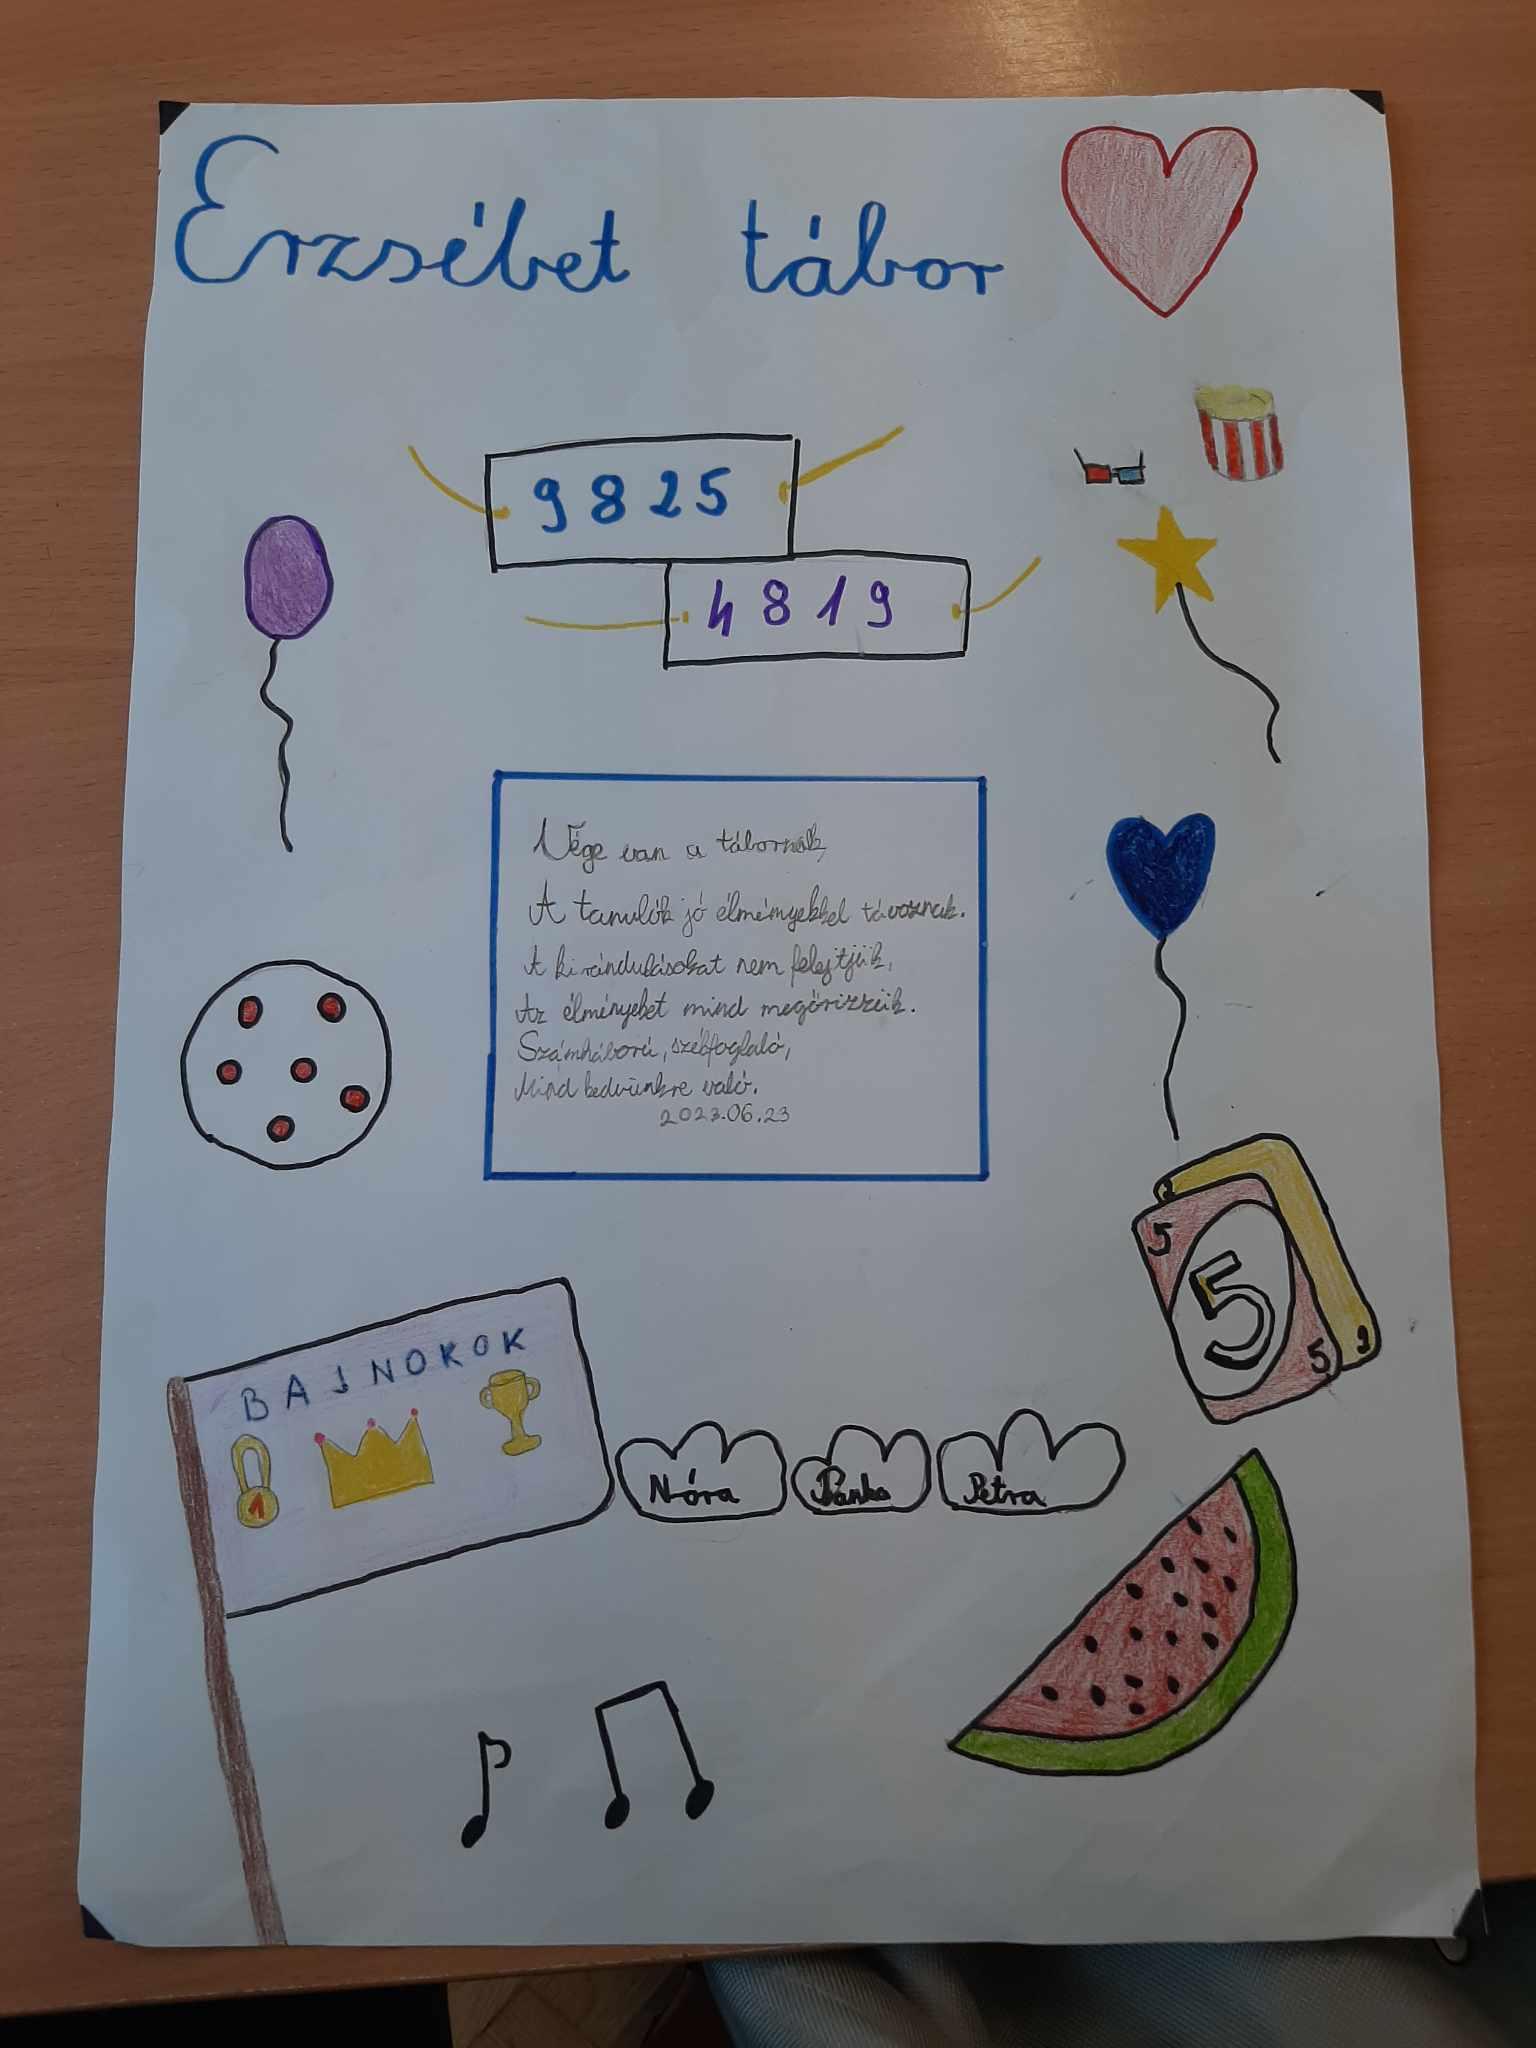 Erzsébet tábor
9825
4819
Vége van a tábornak,
A tanulók jó élményekkel távoznak.
A kirándulásokat nem felejtjük,
Az élményeket mind megőrizzük.
Számháború, székfoglaló,
Mind kedvünkre való.
2023.06.23
2
5
5
5
2
BAJNOKOK
1
Nóra Panka Petra